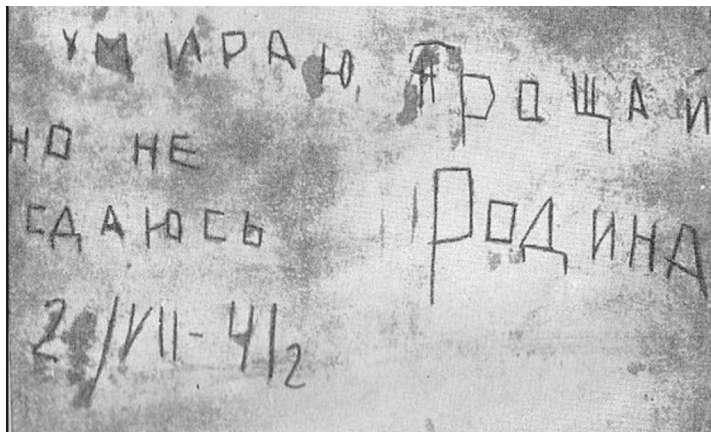 УМИРАЮ,
НО НЕ
СДАЮСЬ
20/VII-41г
ПРОЩАЙ
РОДИНА